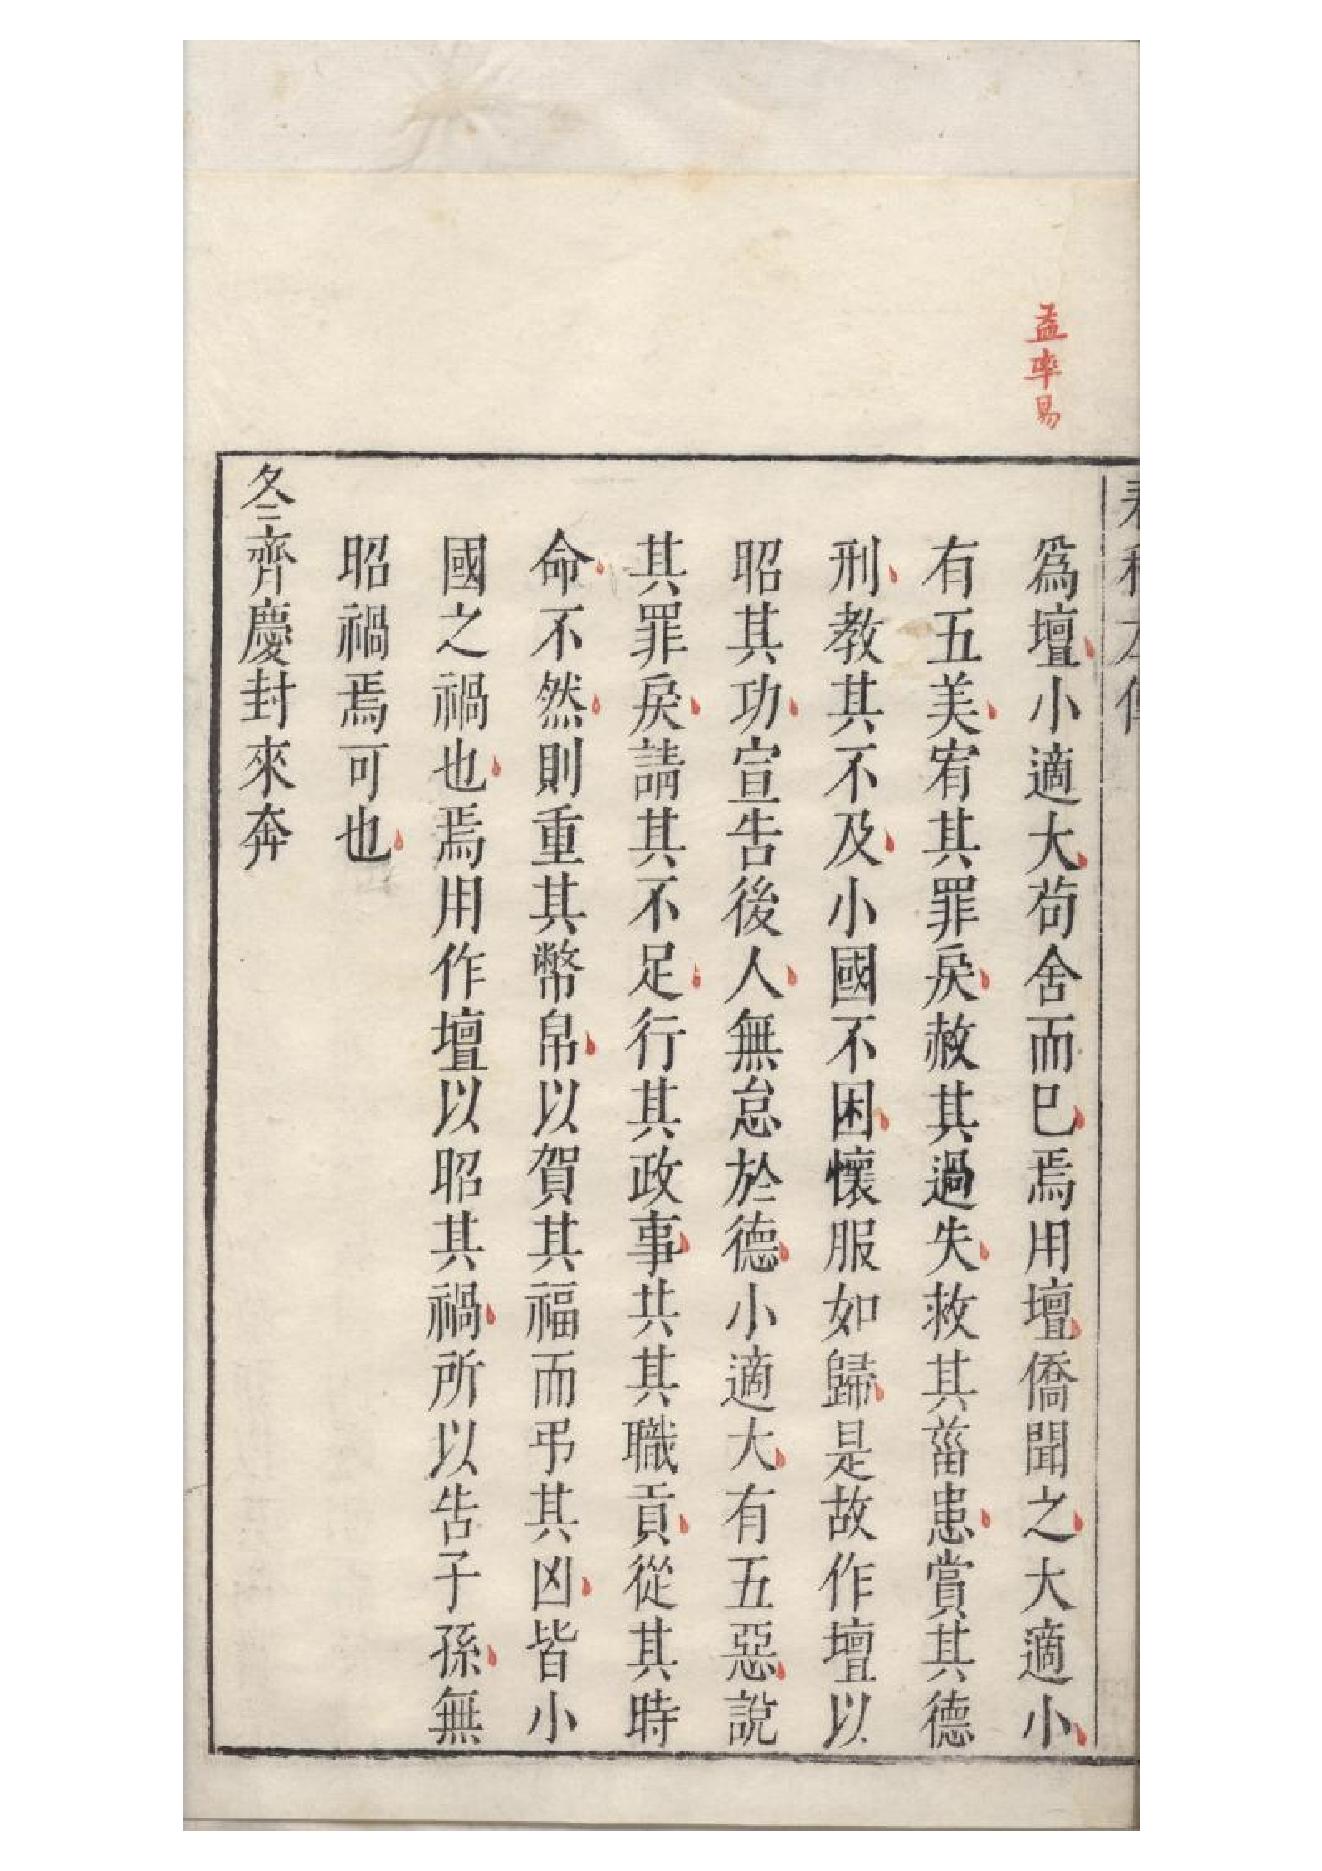 春秋左傳
孟率易
爲壇小適大苟舍而已焉用壇僑聞之大適小
有五美宥其罪戾赦其過失救其菑患賞其德
刑教其不及小國不困懷服如歸是故作壇以
昭其功宣告後人無怠於德小適大有五惡說
其罪戾請其不足行其政事共其職貢從其時
命不然則重其幣帛以賀其福而弔其凶皆小
國之禍也焉用作壇以昭其禍所以告子孫無
昭禍焉可也
冬齊慶封來奔